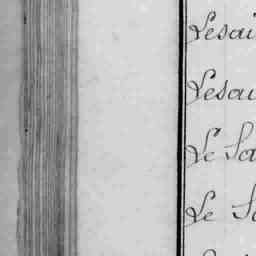 Lesai
Lesai
Le Sa
Le S